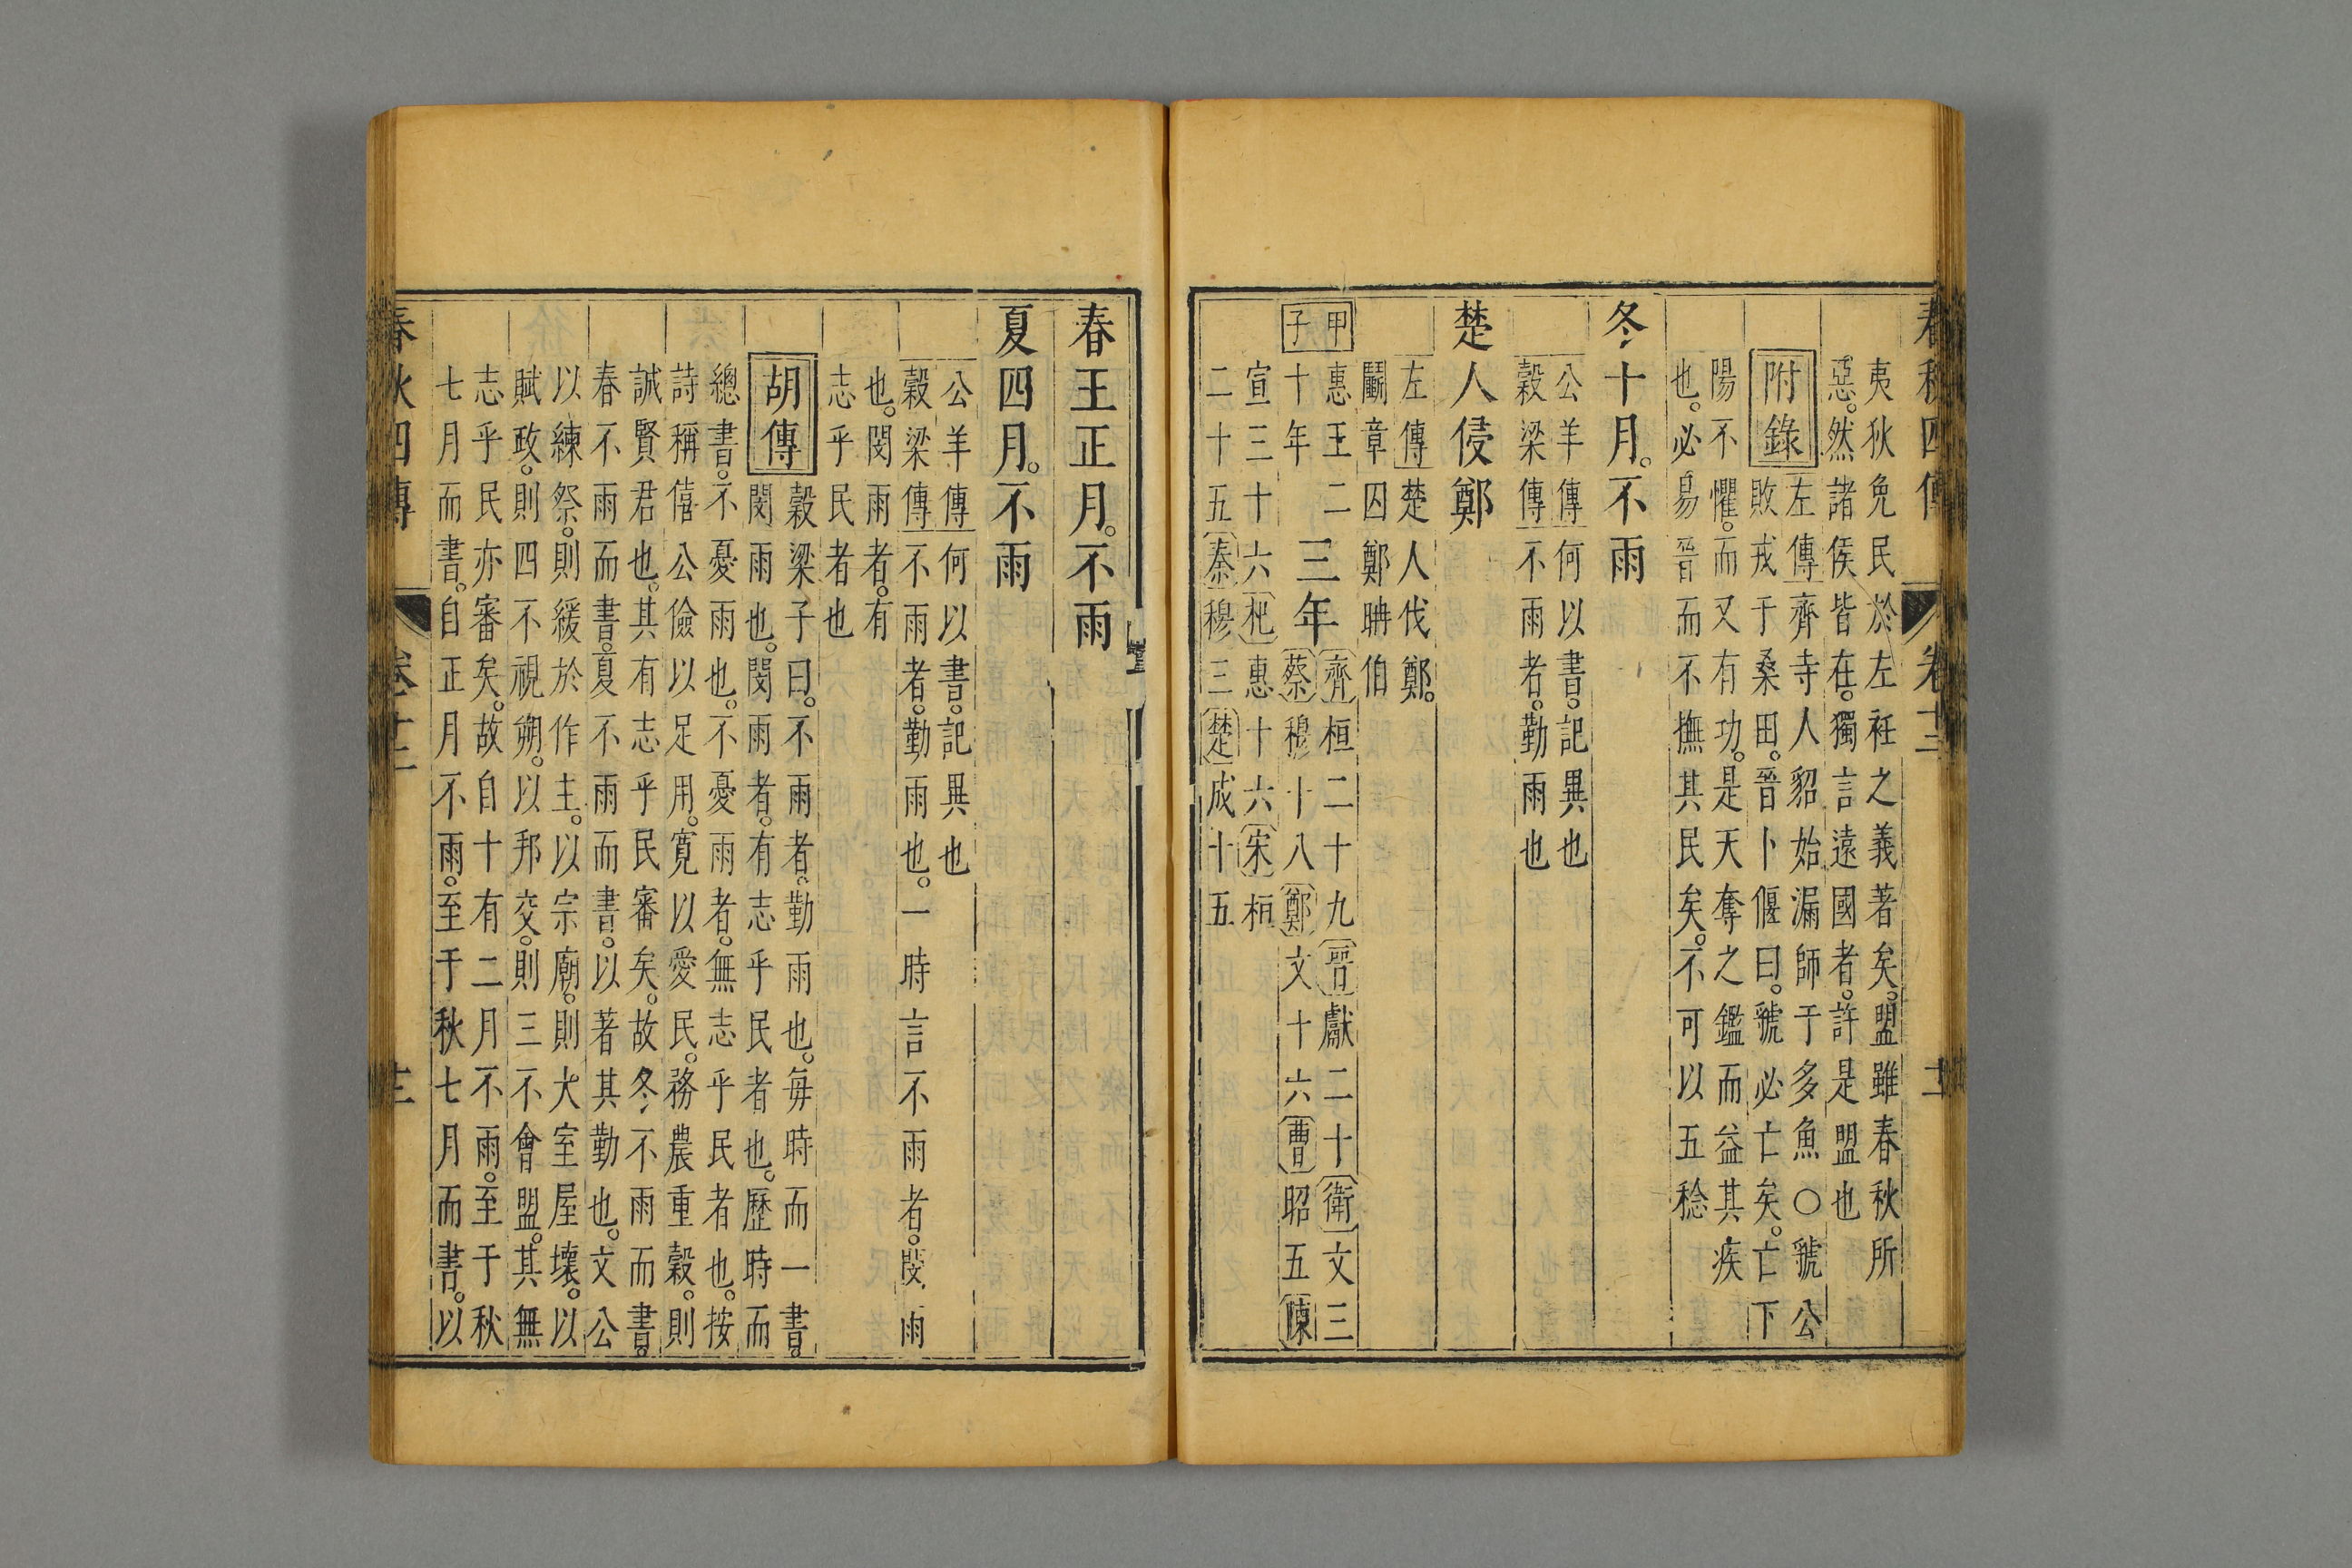 春秋四傳 卷十二
夷狄免民於左衽之義著矣。盟雖春秋所
惡。然諸侯皆在。獨言遠國者。許是盟也
附錄
左傳齊寺人貂始漏師于多魚○虢公
敗戎于桑田。晉卜偃曰。虢必亡矣。亡下
陽不懼。而又有功。是天奪之鑑而益其疾
也。必易晉而不撫其民矣。不可以五稔
冬十月。不雨
公羊傳何以書。記異也
穀梁傳不雨者。勤雨也
楚人侵鄭
左傳楚人伐鄭。
鬬章囚鄭聃伯
甲子
惠王二
十年
三年
齊桓二十九晉獻二十衛文三
蔡穆十八鄭文十六曹昭五陳
宣三十六杞惠十六宋桓
二十五秦穆三楚成十五
春王正月。不雨
夏四月。不雨
公羊傳何以書。記異也
穀梁傳不雨者。勤雨也。一時言不雨者。閔雨
也。閔雨者。有
志乎民者也
胡傳
穀梁子曰。不雨者。勤雨也。每時而一書。
閔雨也。閔雨者。有志乎民者也。歷時而
總書。不憂雨也。不憂雨者。無志乎民者也。按
詩稱僖公儉以足用。寬以愛民。務農重穀。則
誠賢君也。其有志乎民審矣。故冬不雨而書。
春不雨而書。夏不雨而書。以著其勤也。文公
以練祭。則緩於作主。以宗廟。則大室屋壞。以
賦政。則四不視朔。以邦交。則三不會盟。其無
志乎民亦審矣。故自十有二月不雨。至于秋
七月而書。自正月不雨。至于秋七月而書。以
春秋四傳